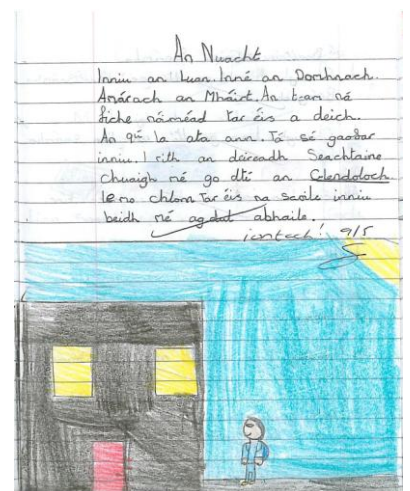 An Nuacht
Inniu an Luan. Inné an Domhnach.
Amárach an Mháirt. An t-am ná
fiche nóiméad tar éis a deich.
An 9ú la ata ann. Tá sé gaofar
inniu. I rith an deireadh Seachtaine
chuaigh mé go dtí an Glendoloch
le mo chlann Tar éis na scoile inniu
beidh mé ag dul abhaile.
iontach! 9/5